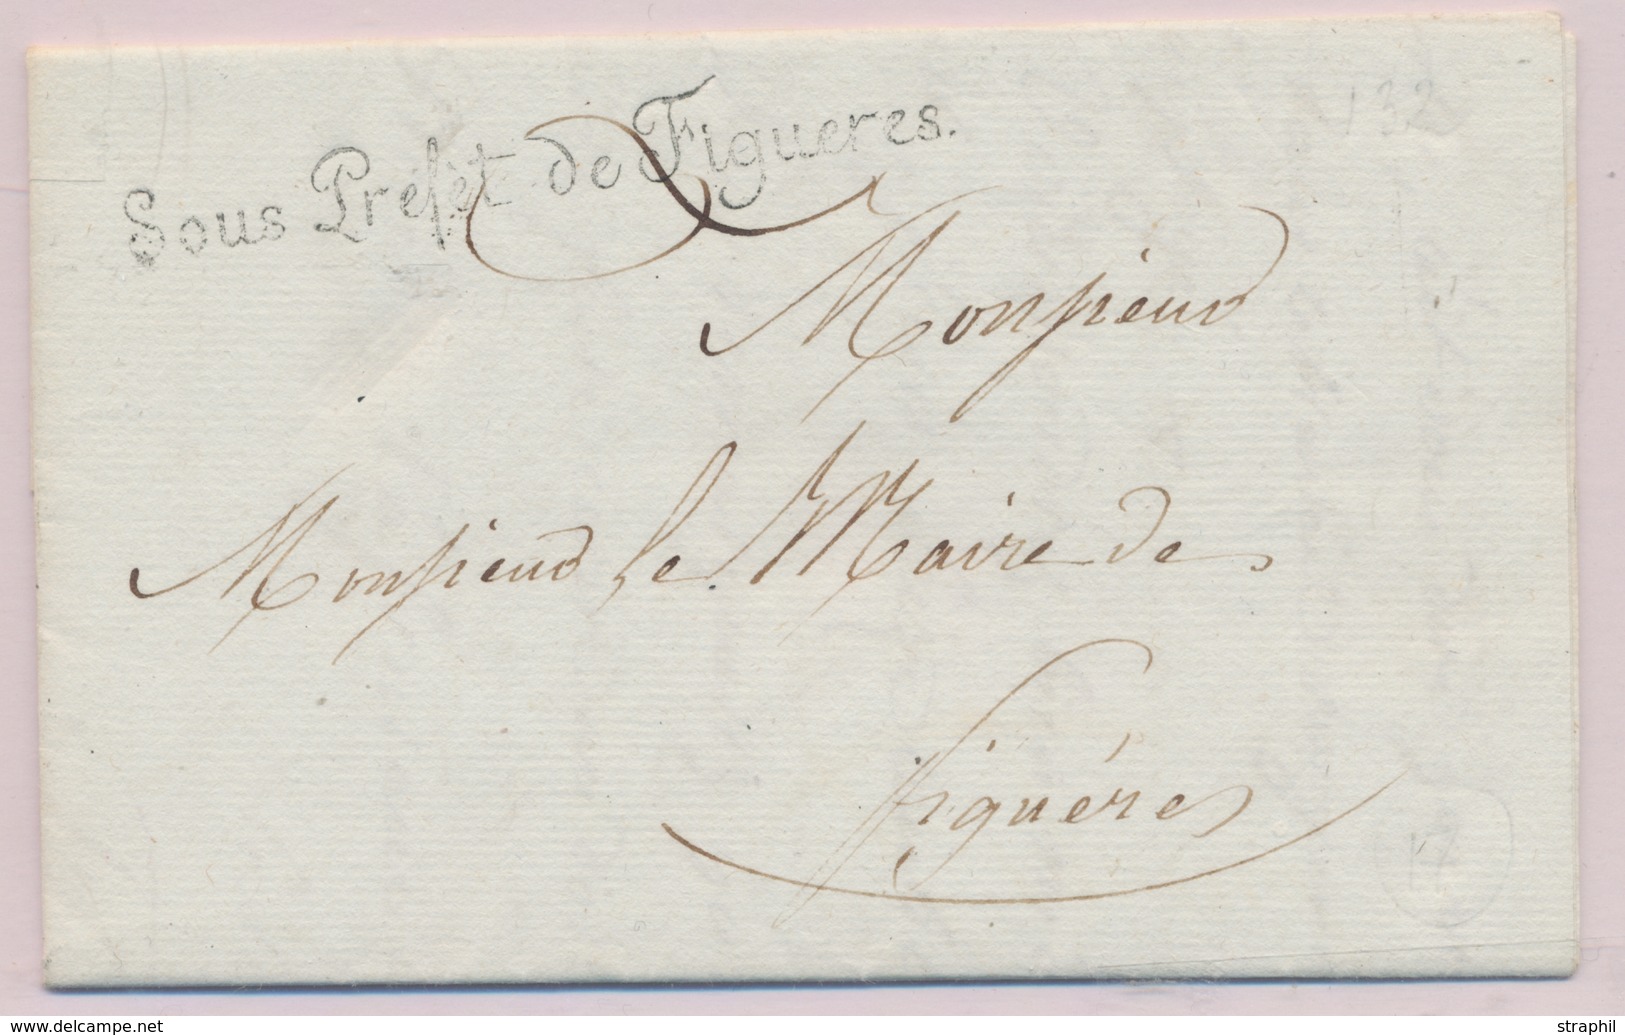 Sous Préfèt de Figueres.
132
Monsieur
Monsieur le Maire de
figuéres
www.delcampe.net
straphil